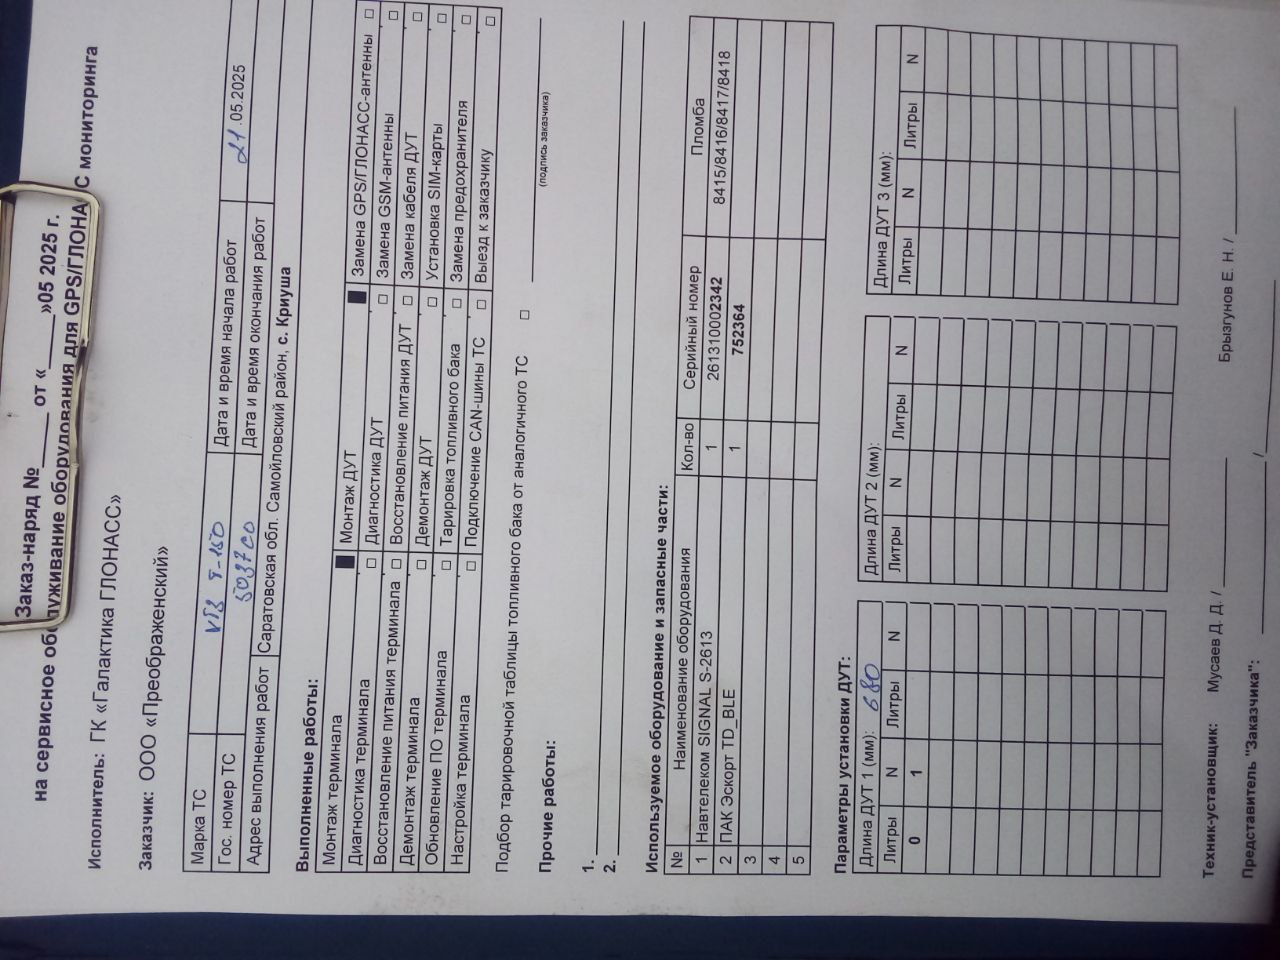 Заказ-наряд №_____ от «_____»05 2025 г.
на сервисное обслуживание оборудования для GPS/ГЛОНАСС мониторинга
Исполнитель: ГК «Галактика ГЛОНАСС»
Заказчик: ООО «Преображенский»
Марка ТС Т-150 Дата и время начала работ 21.05.2025
Гос. номер ТС 5037СО Дата и время окончания работ
Адрес выполнения работ Саратовская обл. Самойловский район, с. Криуша
Выполненные работы:
Монтаж терминала ■ Монтаж ДУТ ■ Замена GPS/ГЛОНАСС-антенны □
Диагностика терминала □ Диагностика ДУТ □ Замена GSM-антенны □
Восстановление питания терминала □ Восстановление питания ДУТ □ Замена кабеля ДУТ □
Демонтаж терминала □ Демонтаж ДУТ □ Установка SIM-карты □
Обновление ПО терминала □ Тарировка топливного бака □ Замена предохранителя □
Настройка терминала □ Подключение CAN-шины ТС □ Выезд к заказчику □
Подбор тарировочной таблицы топливного бака от аналогичного ТС □
(подпись заказчика)
Прочие работы:
1.
2.
Используемое оборудование и запасные части:
№ Наименование оборудования Кол-во Серийный номер Пломба
1 Навтелеком SIGNAL S-2613 1 261310002342 8415/8416/8417/8418
2 ПАК Эскорт TD_BLE 1 752364
3
4
5
Параметры установки ДУТ:
Длина ДУТ 1 (мм): 680 Длина ДУТ 2 (мм): Длина ДУТ 3 (мм):
Литры N Литры N Литры N Литры N Литры N Литры N
0 1
Техник-установщик: Мусаев Д. Д. / Брызгунов Е. Н. /
Представитель "Заказчика": /